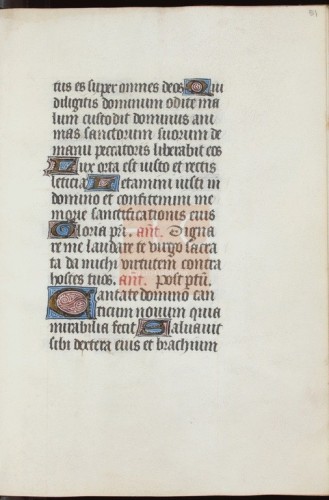 tus es super omnes deos Qui
diligitis dominum odite ma
lum custodit dominus ani
mas sanctorum suorum de
manu peccatoris liberabit eos
Lux orta est iusto et rectis
leticia Letamini iusti in
domino et confitemini me
morie sanctificationis eius
Gloria pri. ant. Digna
re me laudare te virgo sacra
ta da michi virtutem contra
hostes tuos. ant. Post ptū.
Cantate domino can
ticum novum quia
mirabilia fecit Salvavit
sibi dextera eius et brachium